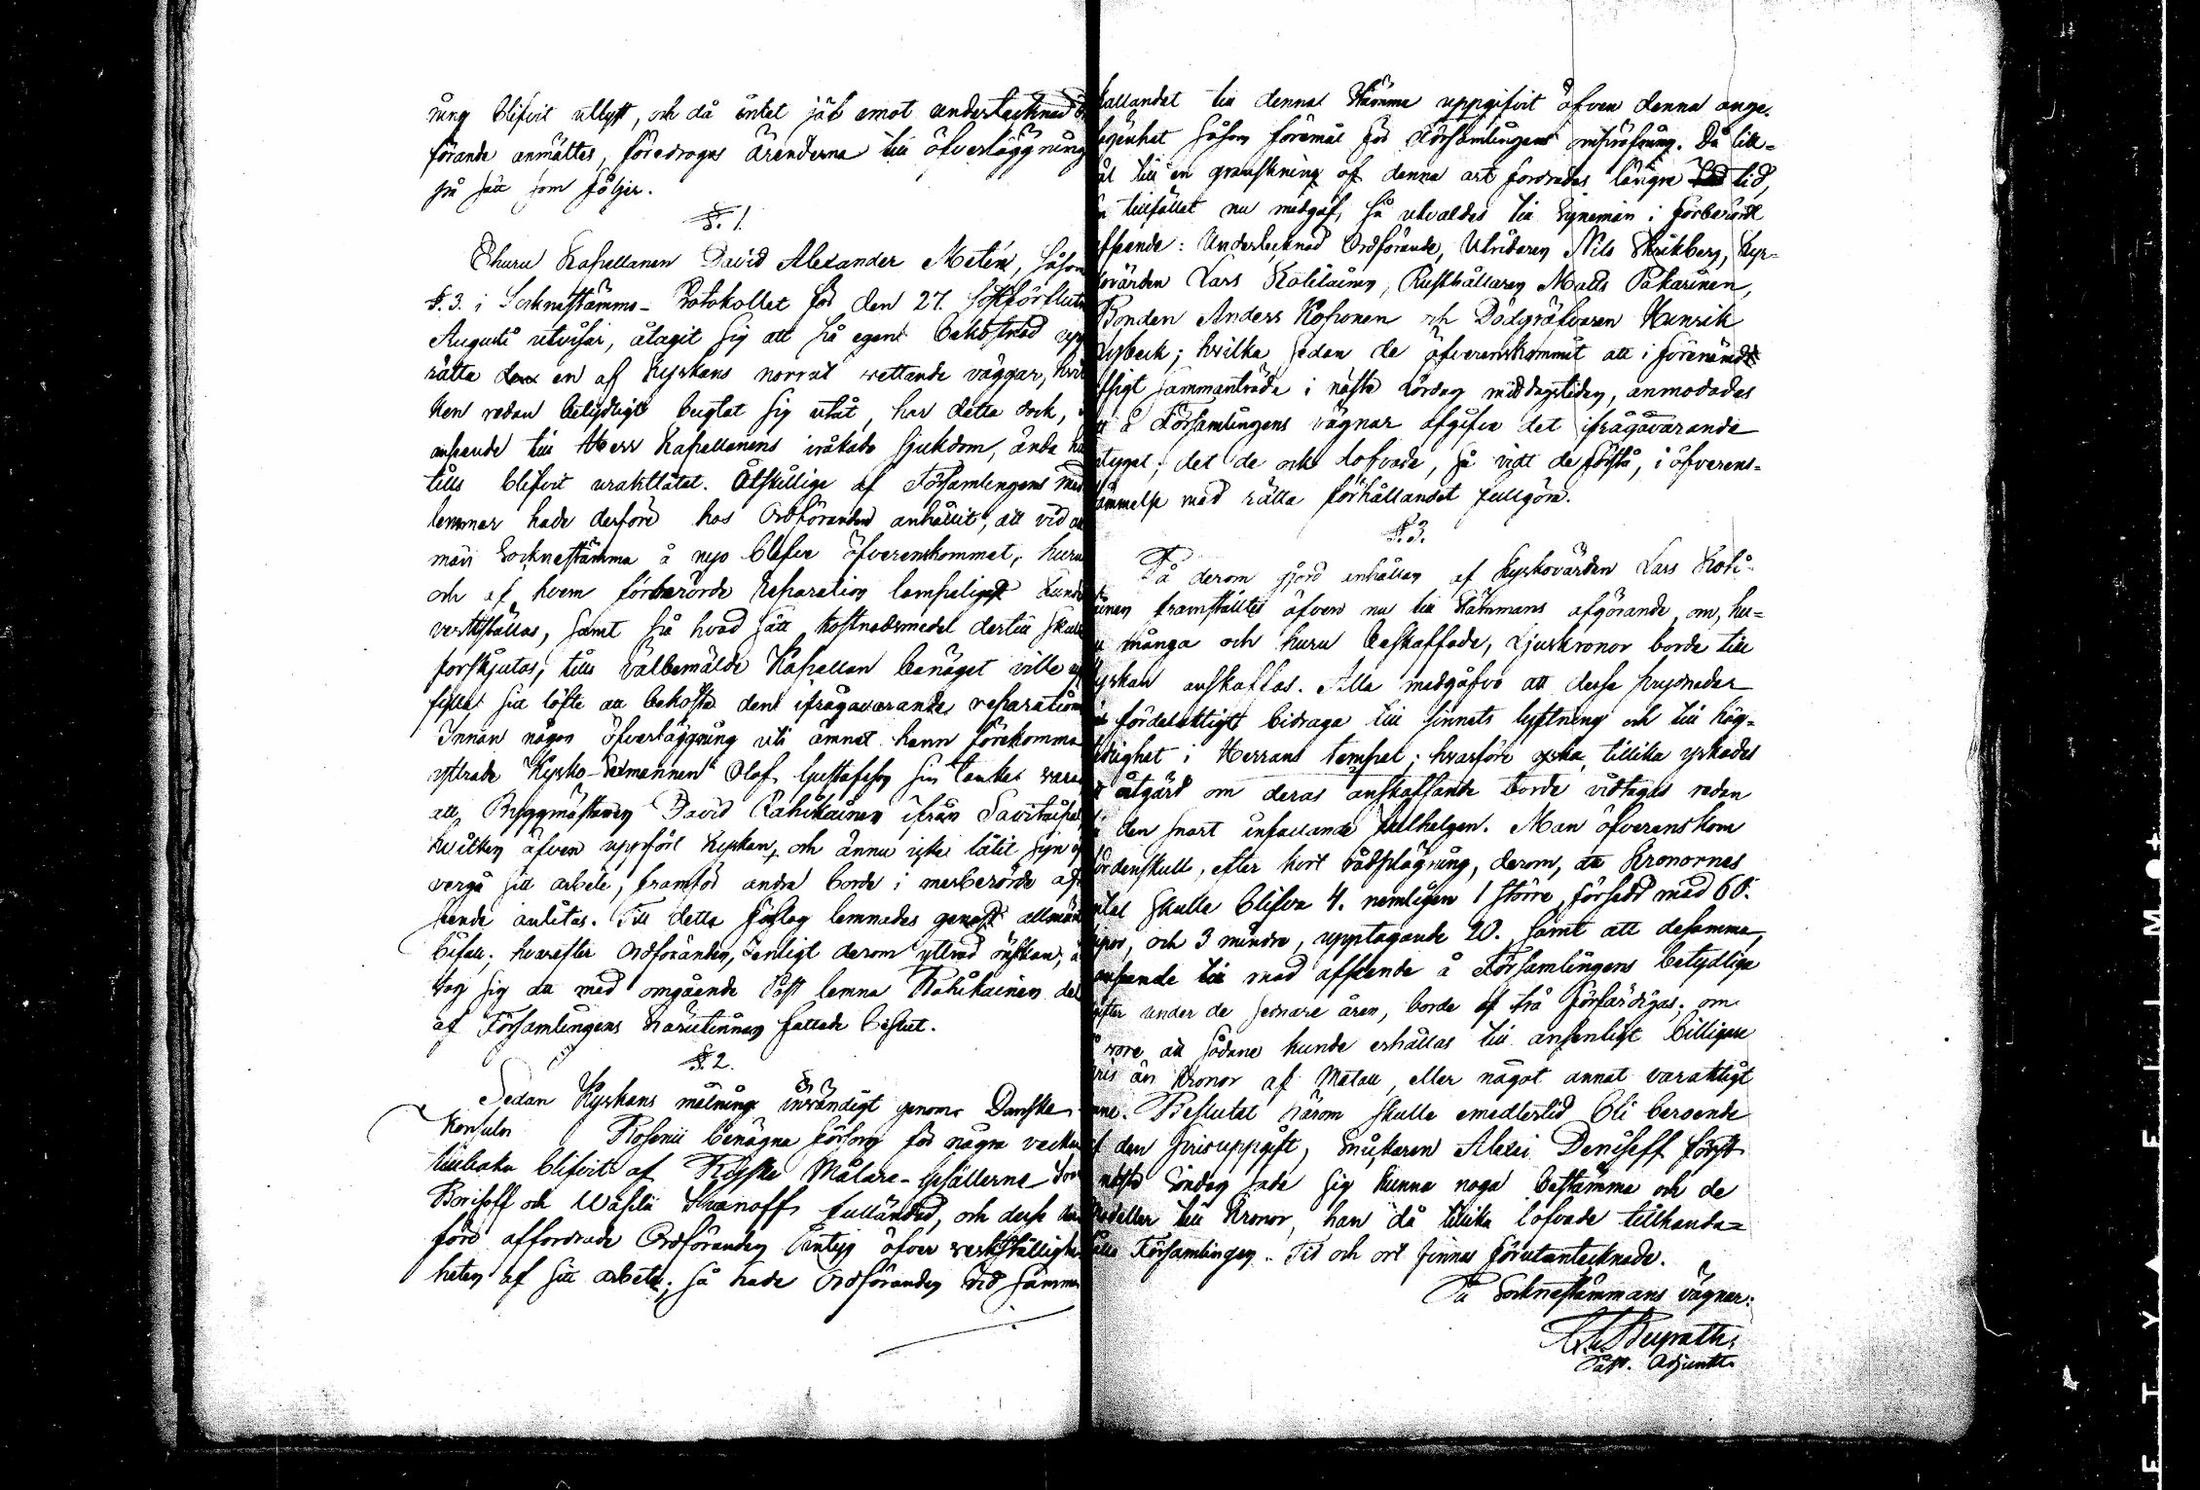 ning blifvit utlyst, och då intet jäf emot undertecknad
förande anmältes, föredrogos ärenderna till öfverläggning
på sätt som följer.
§. 1.
Ehuru Kapellanen David Alexander Metén, såsom
§. 3. i Sockenstämmo-Protokollet för den 27. sistförflutne
Augusti utvisar, åtagit sig att på egen bekostnad upp
rätta en af Kyrkans norrut vettande väggar, hvil
ken redan betydligt bugtat sig utåt, har detta dock, i
anseende till Herr Kapellanens iråkade sjukdom, ända hit
tills blifvit uraktlåtet. Åtskillige af Församlingens med
lemmar hade derföre hos Ordföranden anhållit, att vid all
män Sockenstämma å nyo blefve öfverenskommet, huru
och af hvem förberörde Reparation lämpeligast kunde
verkställas, samt på hvad sätt kostnadsmedel dertill skulle
förskjutas, tills välbemälde Kapellan benäget ville upp
fylla sitt löfte att bekosta den ifrågavarande reparation
Innan någon öfverläggning uti ämnet hann förekomma
yttrade Kyrko-Sexmannen Olof Gustafsson sin tanke vara
att Byggmästaren David Rahikainen ifrån Savitaipal
hvilken äfven uppfört Kyrkan, och ännu icke låtit syn öf
vergå sitt arbete, framför andra borde i merberörde af
seende anlitas. Till detta förslag lemnades genast allmänt
bifall; hvarefter Ordföranden, enligt derom yttrad önskan, å
tog sig att med omgående Post lemna Rahikainen del
af Församlingens härutinnan fattade beslut.
§. 2.
Sedan Kyrkans målning invändigt genom Danske
Konsuln Rosenii benägna försorg för några veckor
tillbaka blifvit af Ryske Målare-Gesällerne
Borisoff och Wasili Ivanoff fulländad, och desse
före affordrade Ordföranden intyg öfver verkställigh
heten af sitt arbete; så hade Ordföranden vid samman
kallandet till denna Stämma uppgifvit äfven denna ange-
lägenhet såsom föremål för Församlingens omröfning. Då lik-
väl till en granskning af denna art fordrades längre tid,
än tillfället nu medgaf, så utvaldes till Synemän i förberördt
afseende: Undertecknad Ordförande, Utridaren Nils Skrikberg, Kyr-
kovärden Lars Kotilainen, Rusthållaren Matts Pakarinen,
Bonden Anders Kosonen och Dödgräfvaren Henrik
Lysbeck; hvilka sedan de öfverenskommit att i förenämdt
afsigt sammanträda i nästa Lördag middagstiden, anmodades
att å Församlingens vägnar afgifva det ifrågavarande
intyget; det de ock lofvade, så vidt de förstå, i öfverens-
stämmelse med rätta förhållandet fullgöra.
§. 3.
På derom gjord anhållan af Kyrkovärden Lars Koti-
lainen framställtes äfven nu till Stämmans afgörande, om, hu-
ru många och huru beskaffade, Ljuskronor borde till
Kyrkan anskaffas. Alla medgåfvo att dessa prydnader
fördelaktigt bidraga till sinnets lyftning och till hög-
tidlighet i Herrans tempel; hvarföre ock tillika yrkades
att åtgärd om deras anskaffande borde vidtagas redan
till den snart infallande Julhelgen. Man öfverenskom
fördenskull, efter kort rådplägning, derom, att Kronornes
antal skulle blifva 4. nemligen 1 större, försedd med 60.
pipor, och 3 mindre, upptagande 20. samt att desamma,
anseende till med afseende å Församlingens betydliga
utgifter under de sednare åren, borde af trä förfärdigas, om
så vore att sådane kunde erhållas till ansenligt billigare
pris än Kronor af Metall, eller något annat varaktigt
ämne. Beslutet härom skulle emedlertid bli beroende
af den prisuppgift, Snickaren Alexei Deniseff först
nästa Söndag sade sig kunna noga bestämma och de
Modeller till Kronor, han då tillika lofvade tillhanda-
hålla Församlingen. Tid och ort finnas förutantecknade.
På Sockenstämmans vägnar:
Past. Adjunkt.